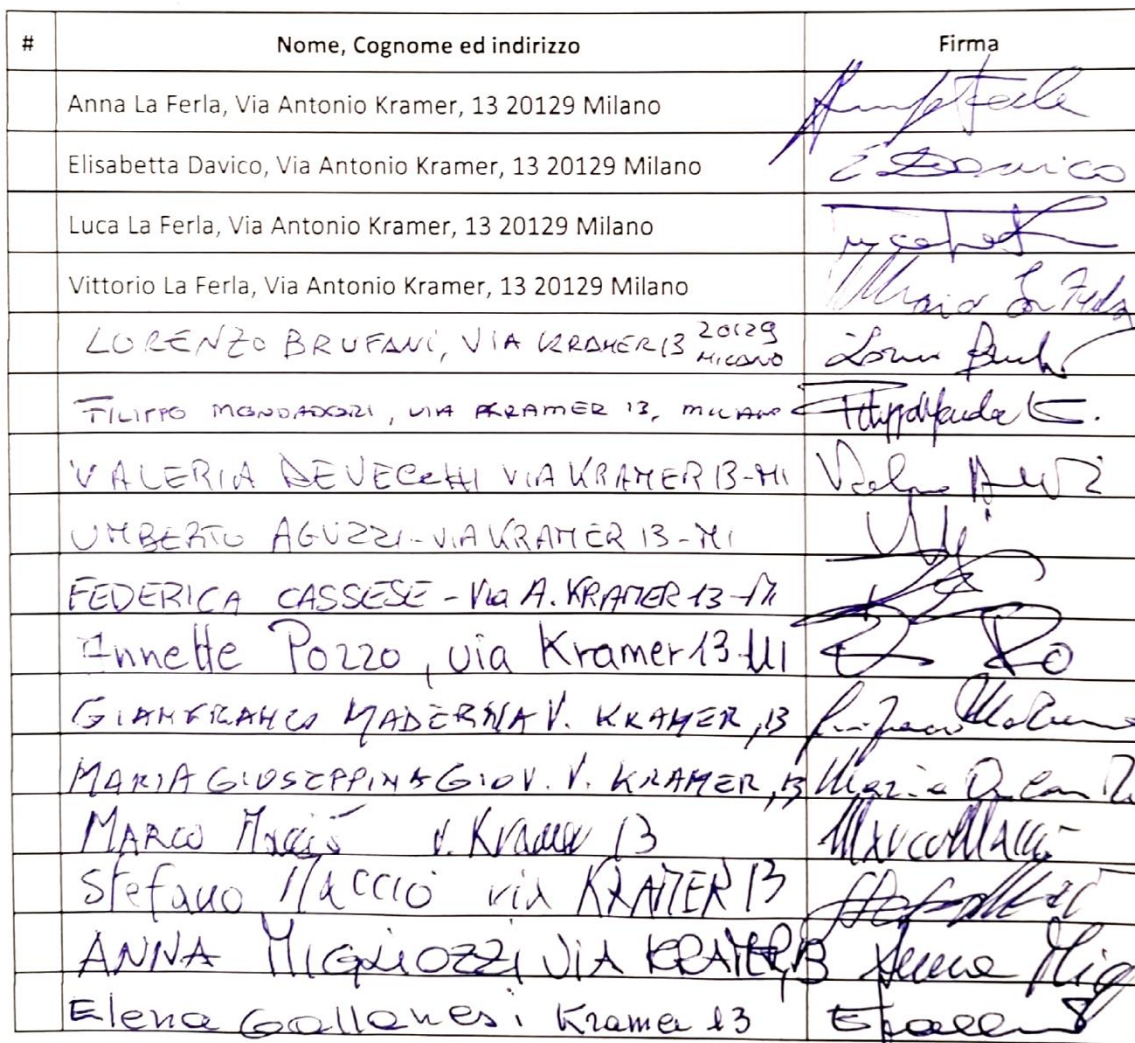 # Nome, Cognome ed indirizzo Firma
Anna La Ferla, Via Antonio Kramer, 13 20129 Milano
Elisabetta Davico, Via Antonio Kramer, 13 20129 Milano E Davico
Luca La Ferla, Via Antonio Kramer, 13 20129 Milano
Vittorio La Ferla, Via Antonio Kramer, 13 20129 Milano
LORENZO BRUFANI, VIA KRAMER 13 20129 MILANO
FILIPPO MONDADORI, VIA KRAMER 13, MILANO
VALERIA DEVECCHI VIA KRAMER 13-MI
UMBERTO AGUZZI-VIA KRAMER 13-MI
FEDERICA CASSESE - Via A. KRAMER 13-MI
Annette Pozzo, via Kramer 13 MI
GIANFRANCO MADERNA V. KRAMER, 13
MARIA GIUSEPPINA GIOV. V. KRAMER, 13
MARCO Macciò v. Kramer 13 Marco Macciò
Stefano MACCIÒ via KRAMER 13
ANNA MIGLIOZZI VIA KRAMER, 13 Anna Mig
Elena Gallanesi Kramer 13